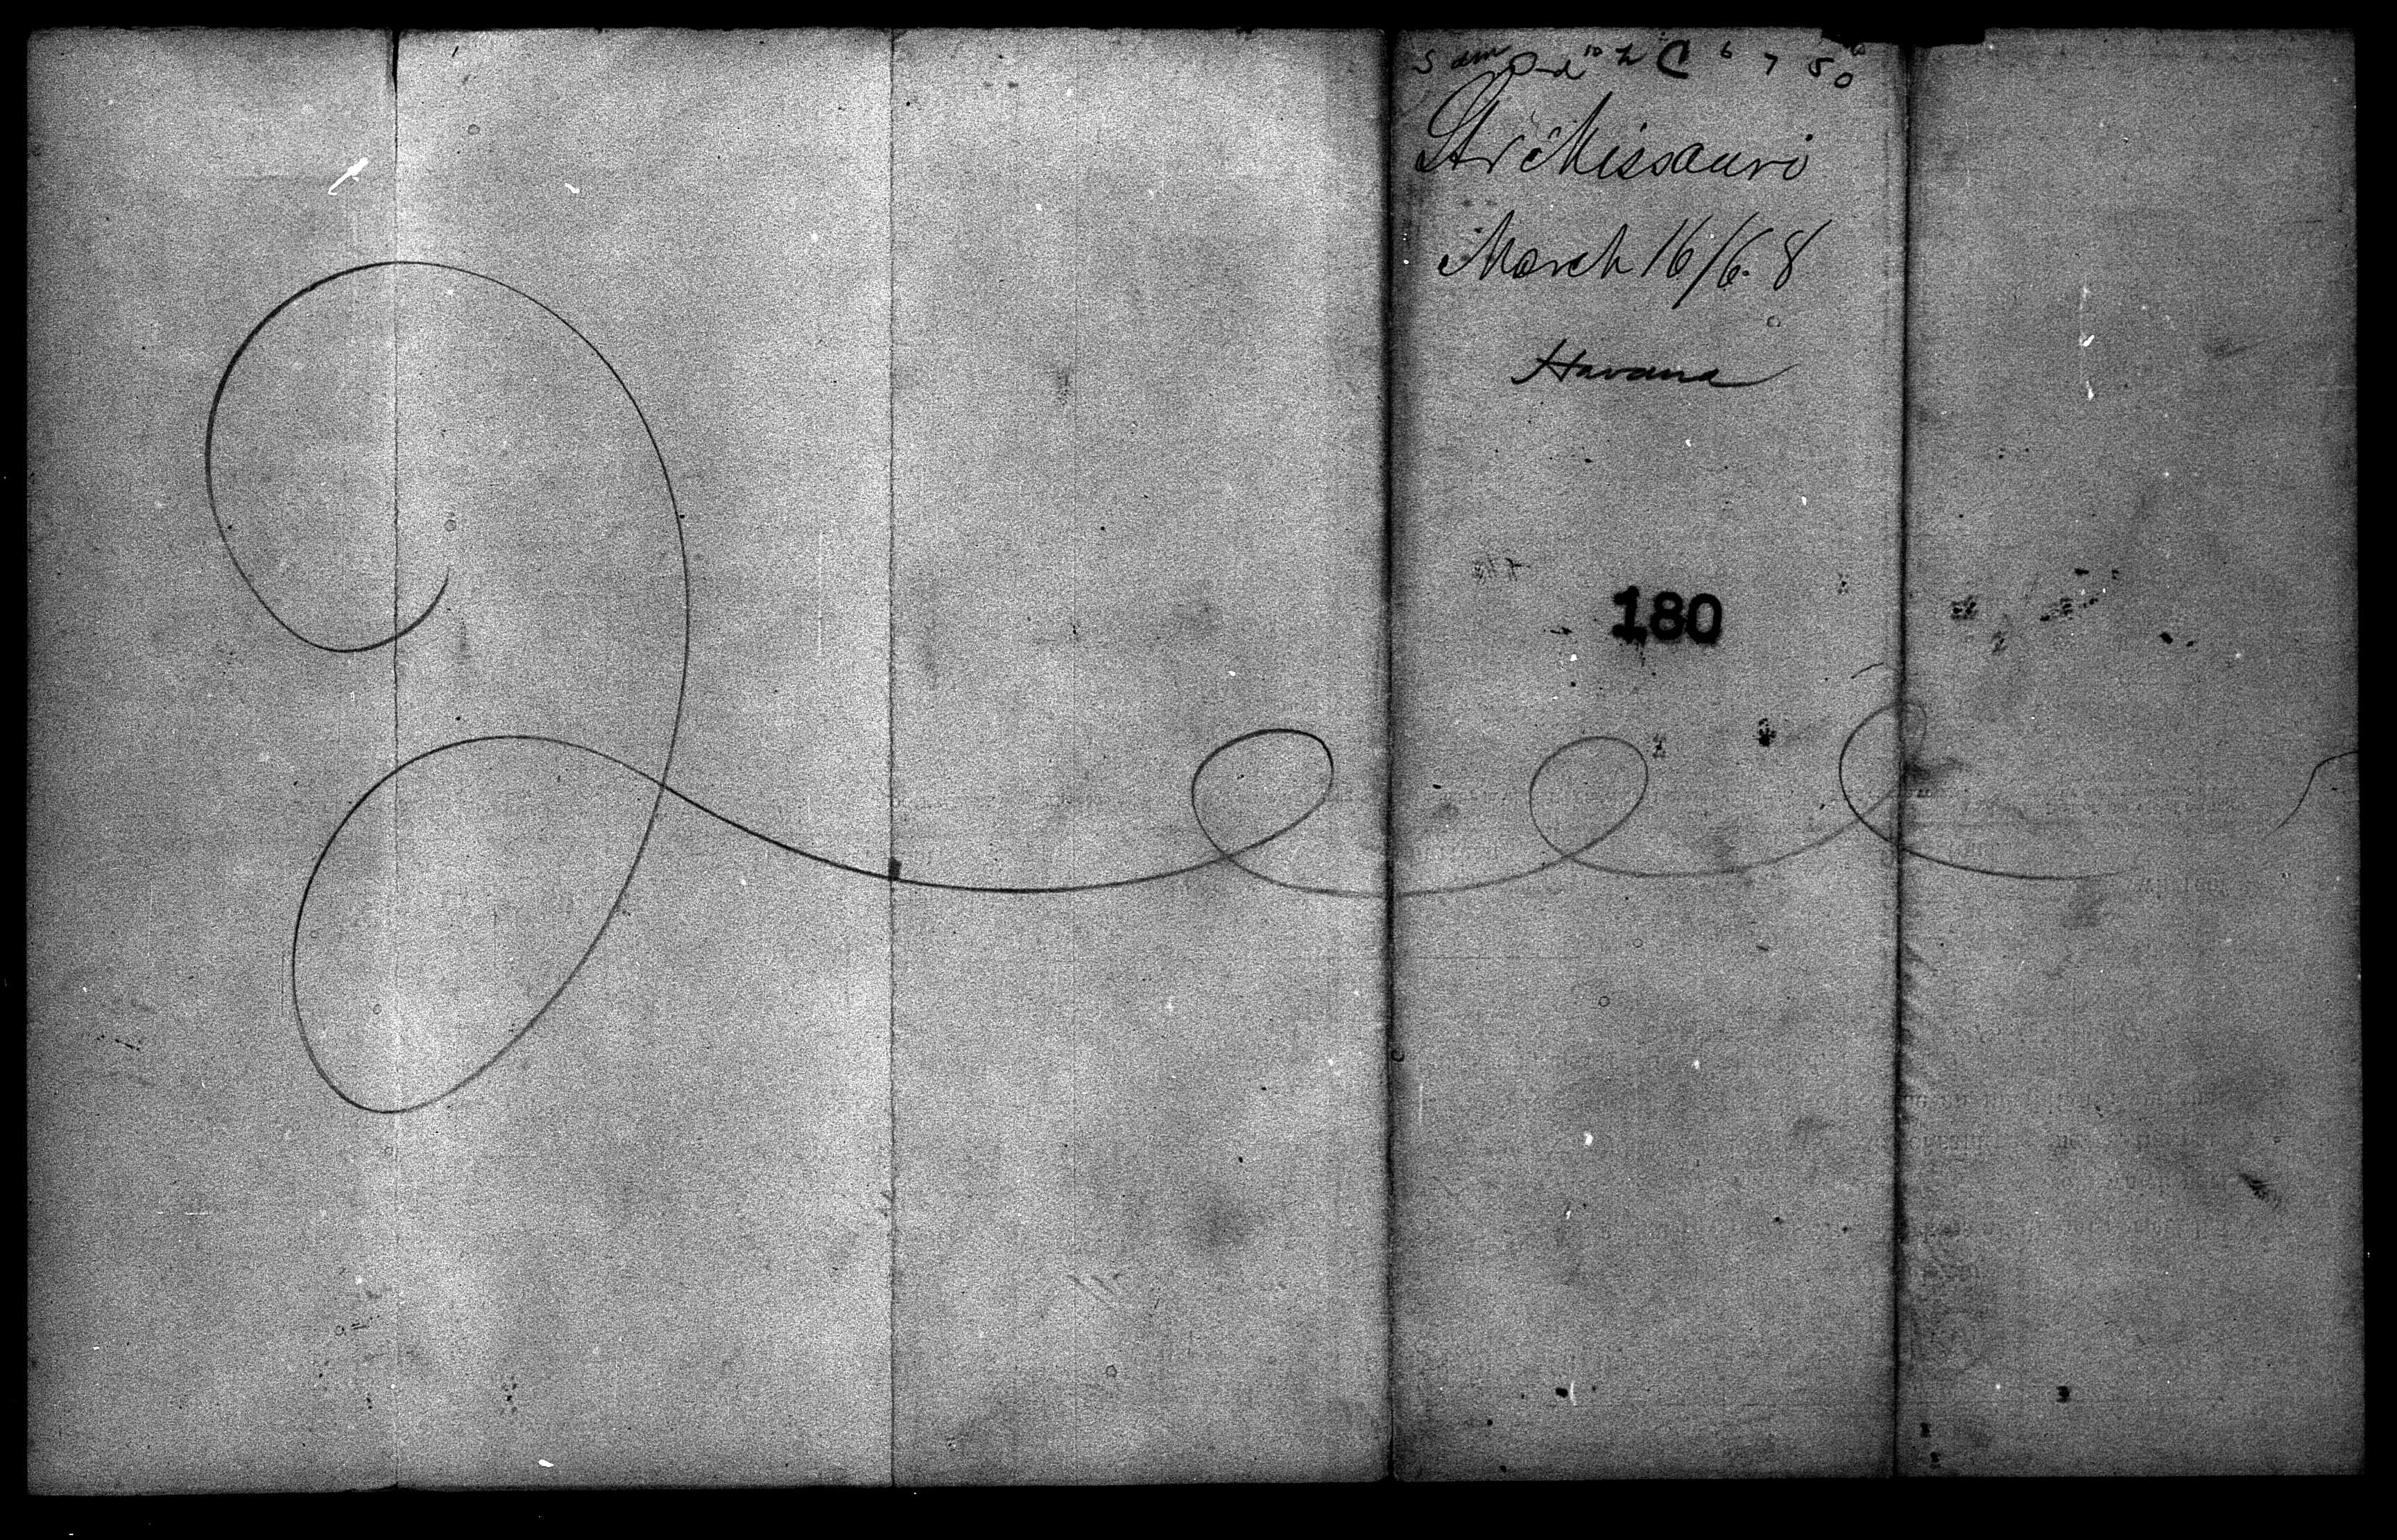 Str Missouri
March 16/68
Havana
180